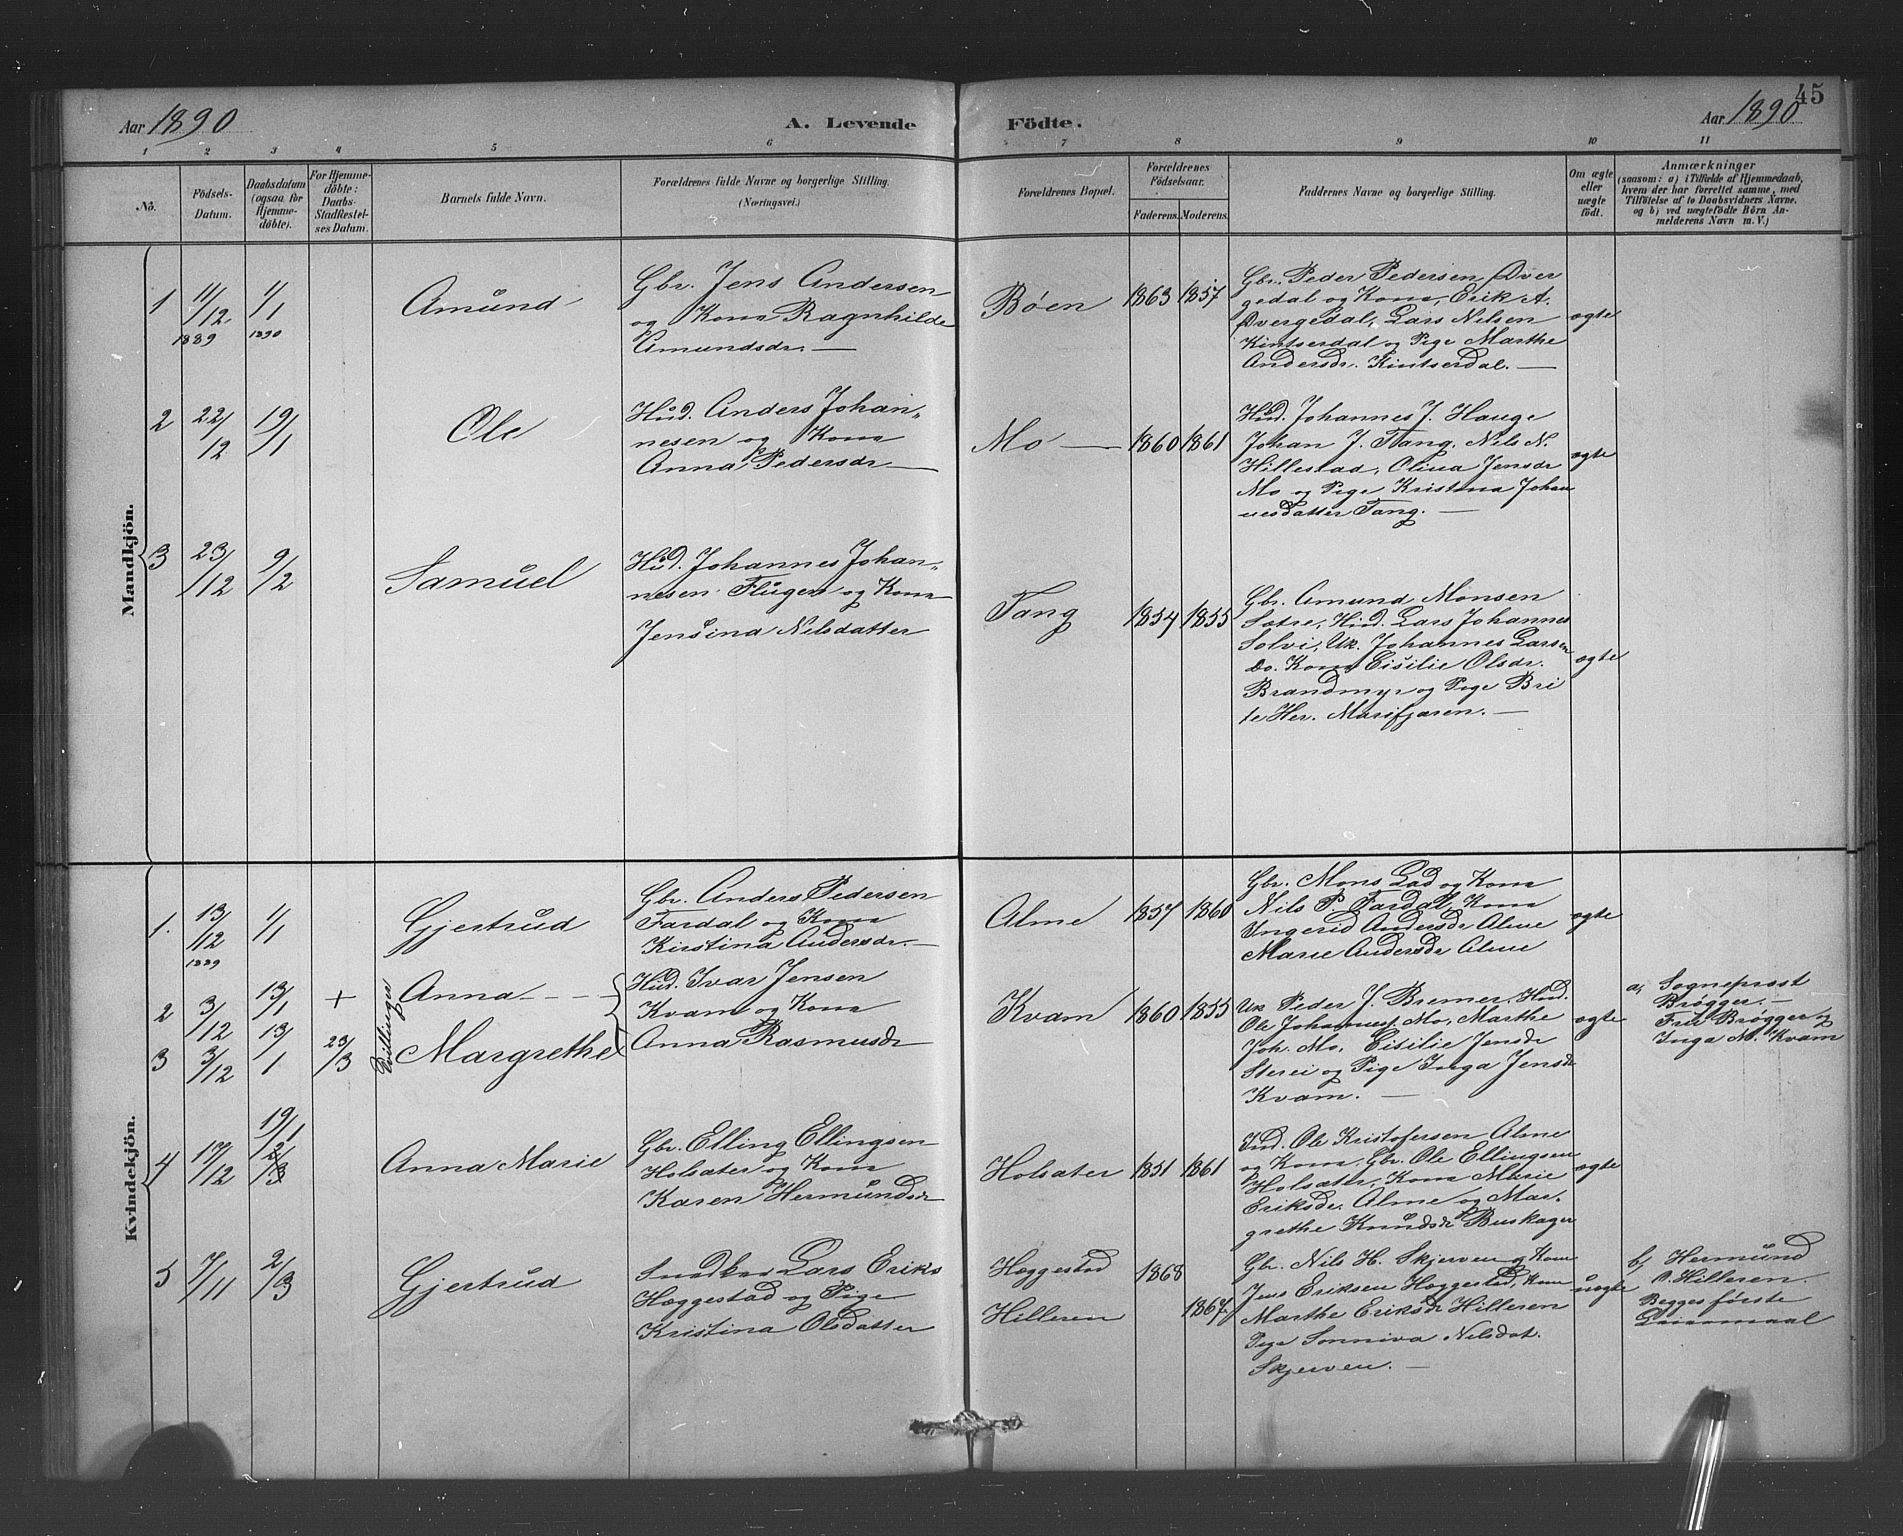 45
Aar 1890 A. Levende Födte. Aar 1890
1 2 3 4 5 6 7 8 9 10 11
No.
Födsels-
Datum.
Daabsdatum
(ogsaa for
Hjemme-
döbte).
For Hjemme-
döbte:
Daabs-
Stadfæstel-
ses Datum.
Barnets fulde Navn.
Forældrenes fulde Navne og borgerlige Stilling.
(Næringsvei.)
Forældrenes Bopæl.
Forældrenes
Födselsaar.
Faderens. Moderens.
Faddernes Navne og borgerlige Stilling.
Om ægte
eller
uægte
födt.
Anmærkninger
(saasom: a) i Tilfælde af Hjemmedaab,
hvem der har forrettet samme, med
Tilföielse af to Daabsvidners Navne,
og b) ved uægtefödte Börn An-
melderens Navn m. V.)
Mandkjön.
1 11/12 1889 1/1 1890
Amund
Gbr. Jens Andersen
og Kona Ragnhilde
Amundsdr. —
Bøen
1863 1857
Gbr. Peder Pedersen Dver
gedal og Kona, Erik A.
Dvergedal, Lars Nilsen
Kintserdal og Pige Marthe
Andersdr. Kintserdal. —
ægte
2 22/12 19/1
Ole
Hud. Anders Johan-
nesen og Kona
Anna Pedersdr —
Mo —
1860 1861
Hud. Johannes J. Hauge
Johan J. Tang, Nils N.
Hillestad, Olina Jensdr
Mo og Pige Kristina Johan
nesdatter Tang. —
ægte
3 23/12 9/2
Samuel
Hud. Johannes Johan-
nesen Flugen og Kona
Jensina Nilsdatter
Tang
1854 1855
Gbr. Amund Monsen
Sætre, Hud. Lars Johannes
Solvi, Uk. Johannes Larsen
do. Kona Cisilie Olsdr.
Brandmyr og Pige Bri
te Her. Marifjæren. —
ægte
Kvindekjön.
1. 13/12 1889 1/1
Gjertrud
Gbr. Anders Pedersen
Fardal og Kona
Kirstina Andersdr. —
Alme
1857 1860
Gbr. Mons Lad og Kona
Nils P. Fardal, Kona
Ingerid Andersdr Alme
Marie Andersdr Alme
ægte
2 3/12 13/1 +
Tvillinger
Anna - - -
3 3/12 13/1 23/3
Margrethe
Hud. Ivar Jensen
Kvam og Kona
Anna Rasmusdr
Kvam
1860 1855
Uk Peder J. Bremer, Hud.
Ole Johannes Mo, Marthe
Joh. Mo, Cisilie Jensdr
Sterei og Pige Inga Jensdr
Kvam. —
ægte
a, Sogneprest
Brøgger. —
Fru Brøgger og
Inga M. Kvam
4 17/12 19/1 2/3
Anna Marie
Gbr. Elling Ellingsen
Holsæter og Kona
Karen Hermundsdr
Holsæter
1851 1861
Ind. Ole Kristofersen Alme
og Kona, Gbr. Ole Ellingsen
Holsæter, Kona Marie
Eriksdr. Alme og Mar-
grethe Knudsdr Buskager
ægte
5 7/11 2/3
Gjertrud
Snedker Lars Eriks
Hæggestad og Pige
Kristina Olsdatter
Hæggestad
Hilleren
1868
1867
Gbr. Nils H. Skjerven og Kona
Jens Eriksen Hæggestad, Kona
Marthe Eriksdr Hilleren
Pige Sønniva Nilsdat.
Skjerven. —
uægte
b, Hermund
O. Hilleren.
Begges første
Leiermaal